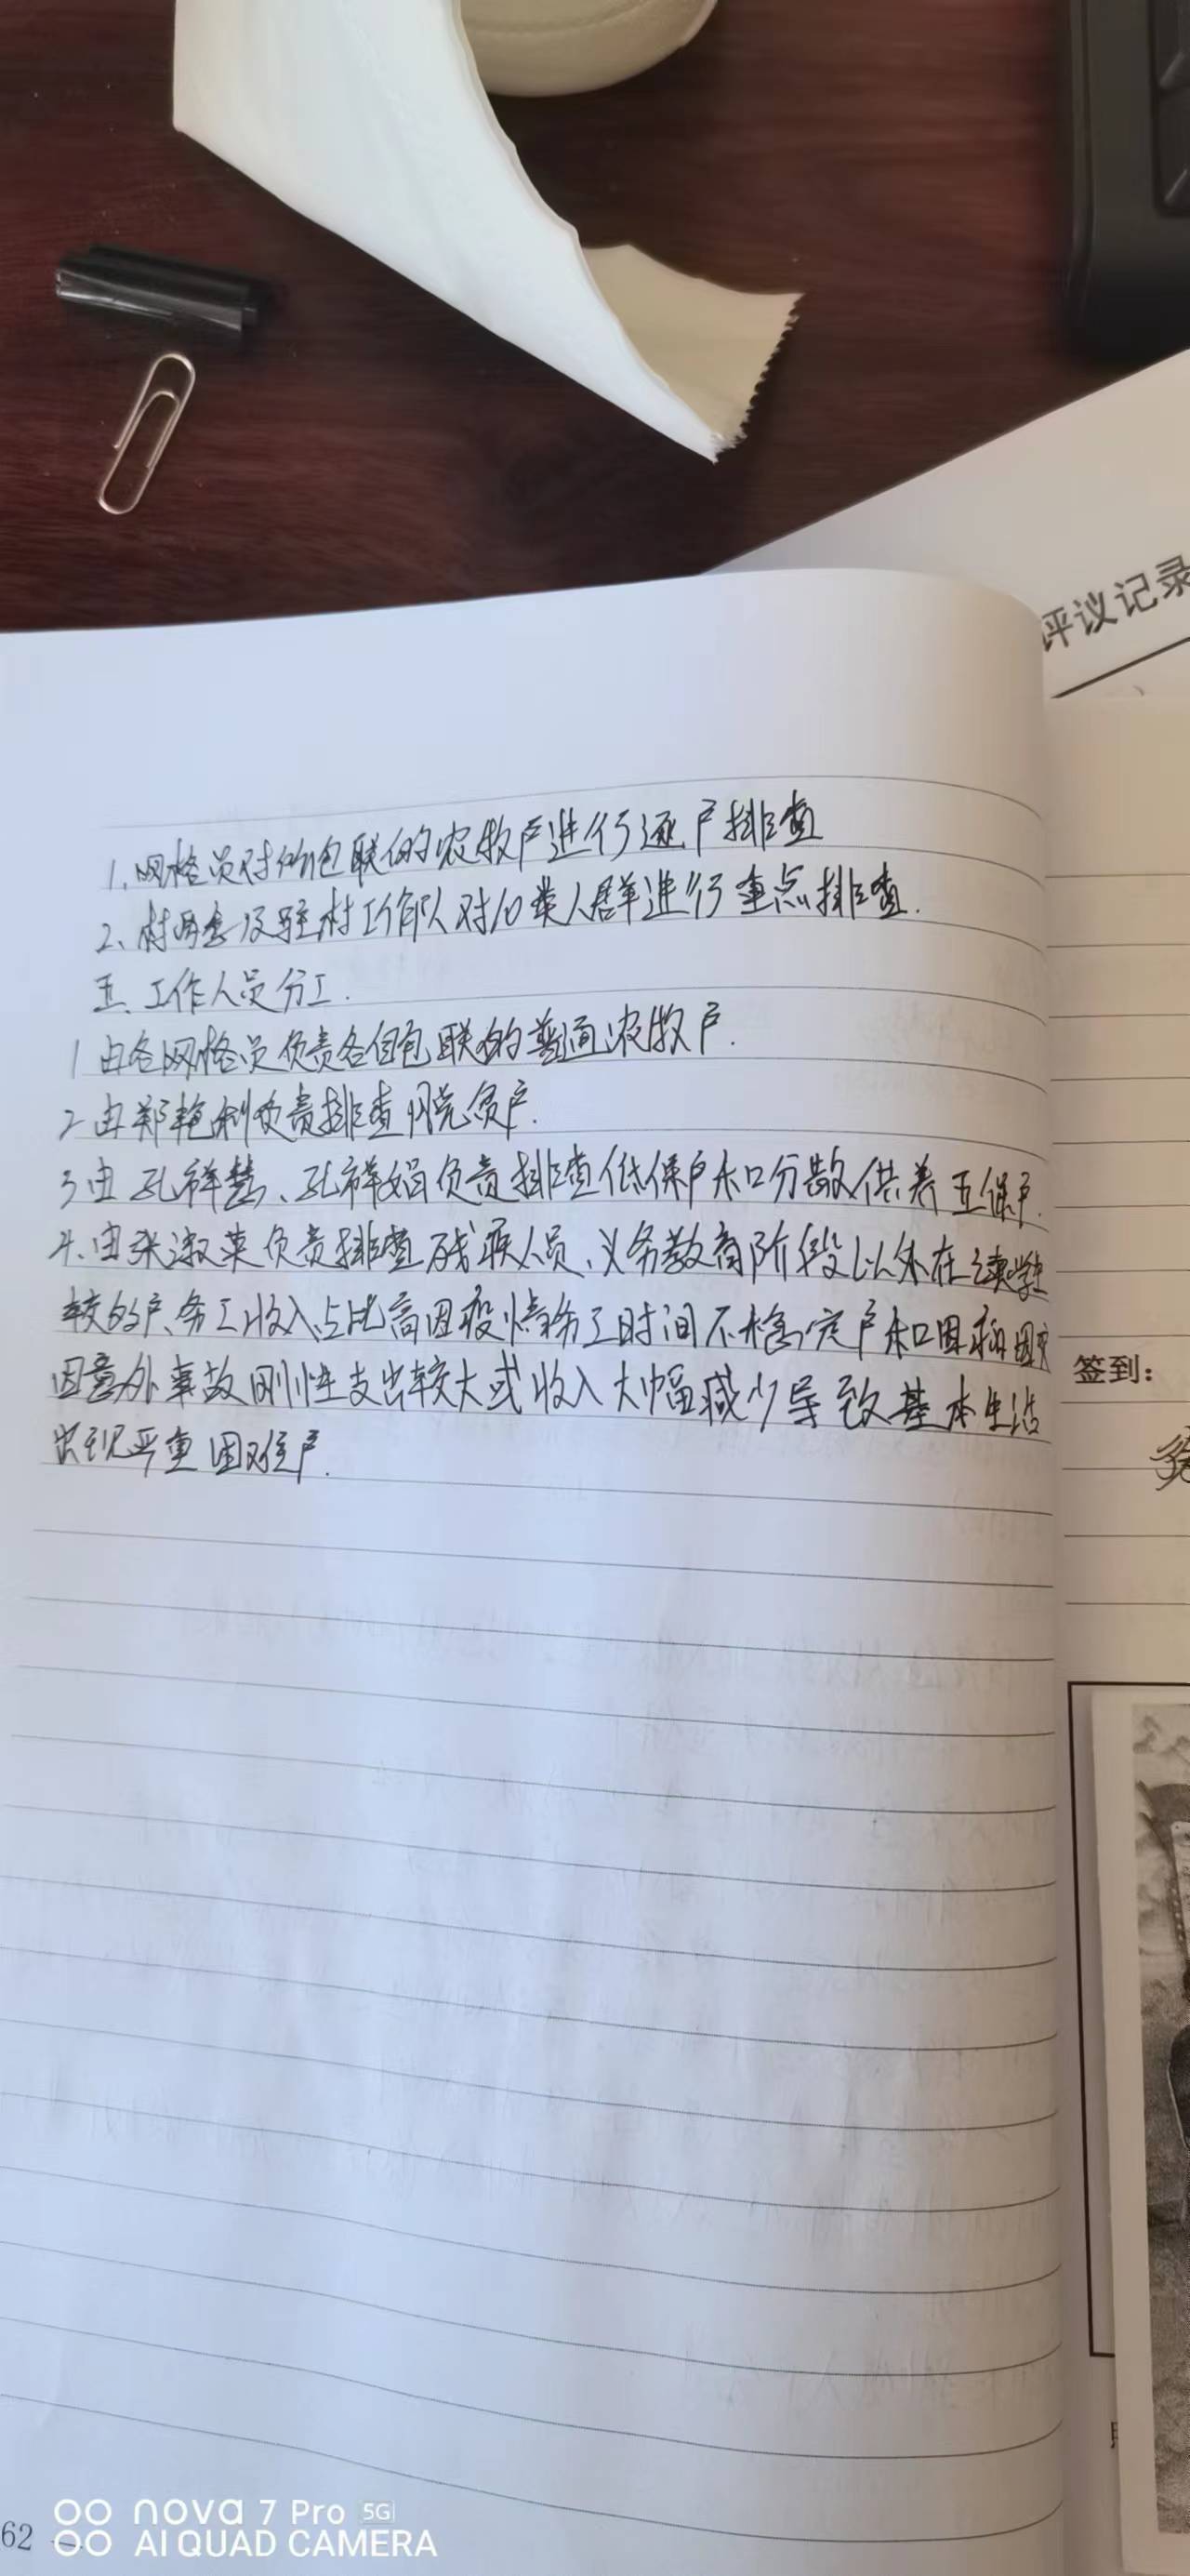 评议记录
1、网格员对所包联的农牧户进行逐户排查
2、村两委及驻村工作队对10类人群进行重点排查.
五、工作人员分工.
1 由各网格员负责各自包联的普通农牧户.
2 由郑艳利负责排查脱贫户.
3 由孔祥慧、孔祥娟负责排查低保户和分散供养五保户.
4、由张淑英负责排查残疾人员、义务教育阶段以外在读学生
较多的户、务工收入占比高因疫情务工时间不稳定户和因病因灾
因意外事故刚性支出较大或收入大幅减少导致基本生活
出现严重困难户.
签到：
62
nova 7 Pro 5G
AI QUAD CAMERA